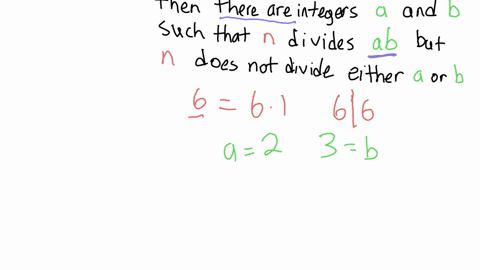 Then there are integers a and b
Such that n divides ab but
n does not divide either a or b
6 = 6·1 6|6
a = 2 3 = b